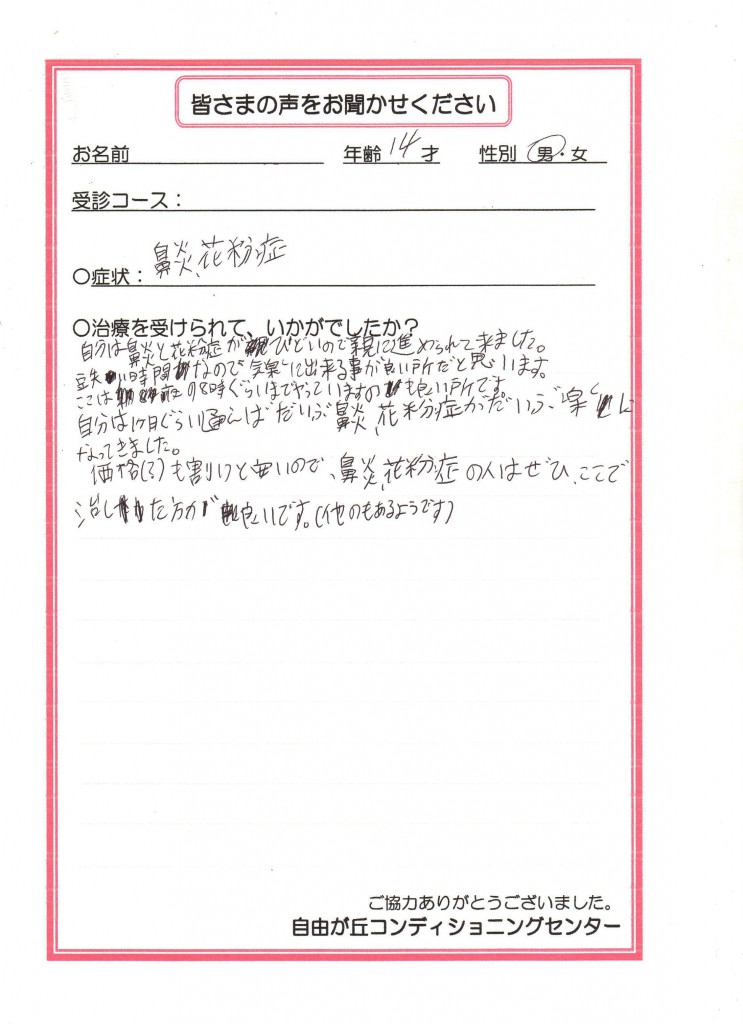 皆さまの声をお聞かせください
お名前 年齢 14 才 性別 男・女
受診コース：
○症状： 鼻炎、花粉症
○治療を受けられて、いかがでしたか？
自分は鼻炎と花粉症がひどいので親に進められて来ました。
短い時間なので気楽に出来る事が良い所だと思います。
ここは夜の8時ぐらいまでやっていますの も良い所です。
自分は1ヶ月ぐらい通えばだいぶ鼻炎、花粉症がだいぶ楽に
なってきました。
価格(?)も割りと安いので、鼻炎、花粉症の人はぜひ、ここで
治した方が良いです。(他のもあるようです)
ご協力ありがとうございました。
自由が丘コンディショニングセンター